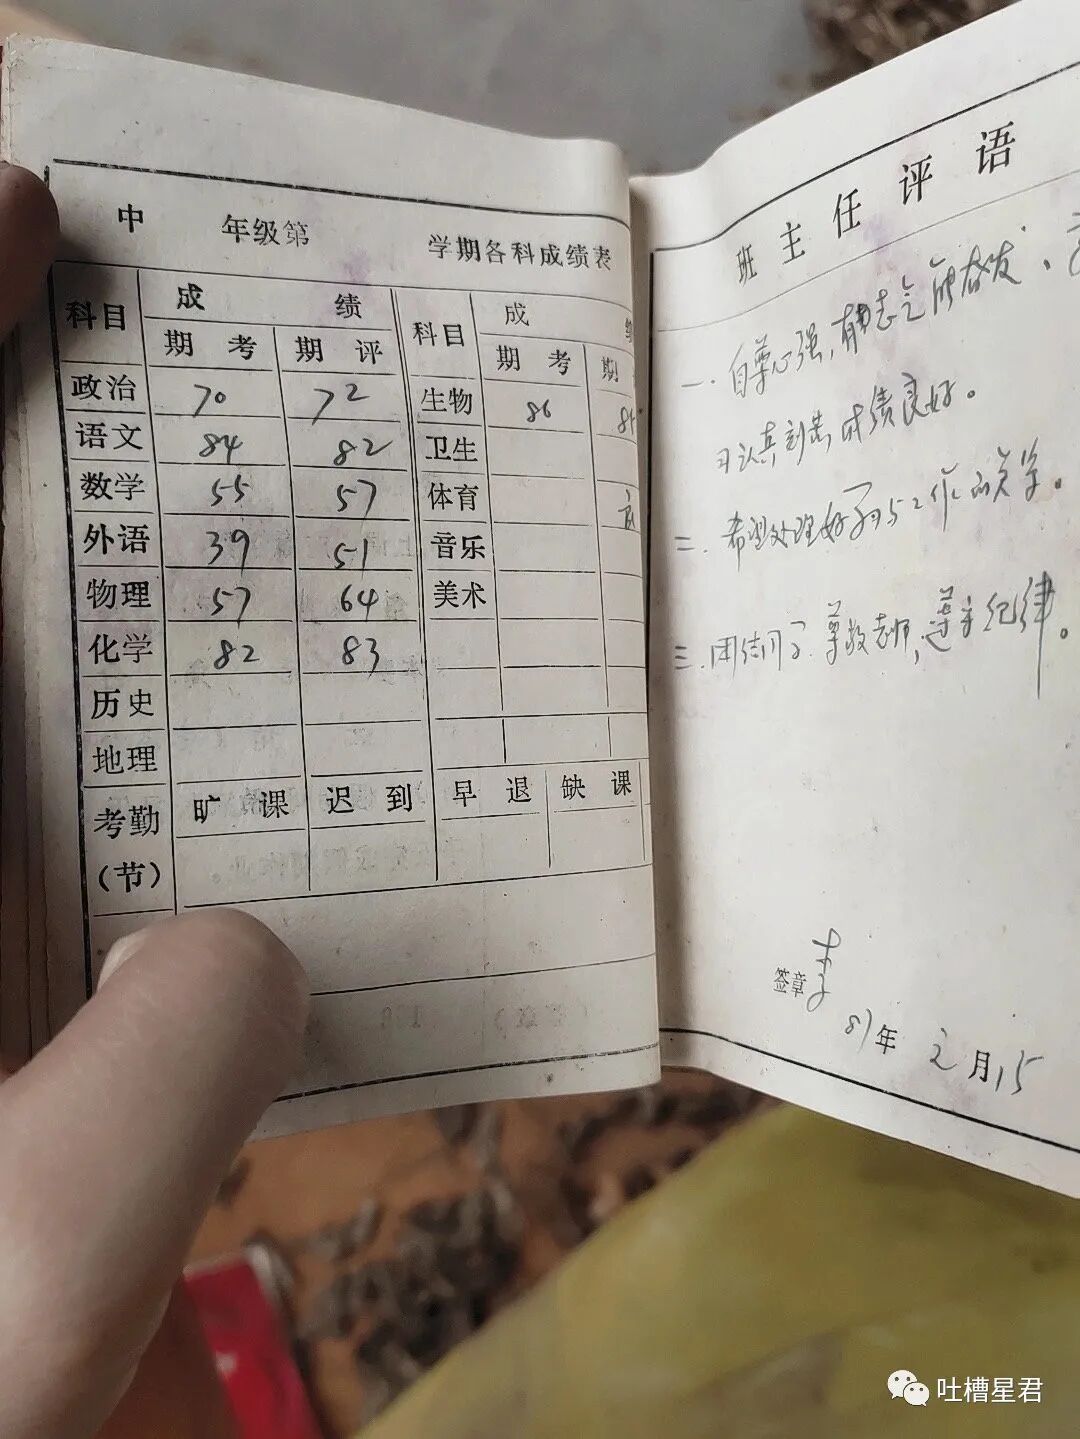 中 年级第 学期各科成绩表
科目 成 绩 科目 成
期 考 期 评 期 考 期
政治 70 72 生物 86
语文 84 82 卫生
数学 55 57 体育
外语 39 51 音乐
物理 57 64 美术
化学 82 83
历史
地理
考勤（节） 旷 课 迟 到 早 退 缺 课
班 主 任 评 语
一．自尊心强，有志气能奋发、
习认真刻苦，成绩良好。
二．希望处理好学习与工作的关系。
三．团结同学．尊敬老师，遵守纪律。
签章
87年 2月15
吐槽星君